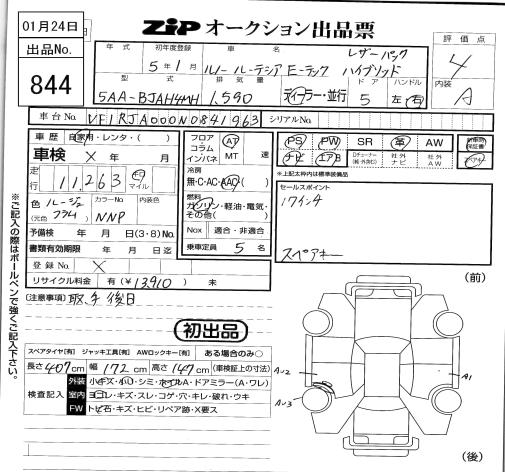 01月24日
出品No.
844
ZIP オークション出品票
評価点
4
内装
A
年式 初年度登録 車名
5年1月 ルノー ルーテシア E-テック ハイブリッド レザーパック
型式 排気量 ドア ハンドル
5AA-BJAH4MH 1,590 ディーラー・並行 5 左・右
車台No. VF1RJA000N0841963 シリアルNo.
車歴 自家用・レンタ・( )
車検 ×年 月
走行 11,263 キロ マイル
色 ルージュ フラム (元色) カラーNo. NNP 内装色
予備検 年 月 日(3・8)No.
書類有効期限 年 月 日迄
登録No. ×
リサイクル料金 有(¥13,910) 未
フロア コラム インパネ AT MT 速
冷房 無・C・AC・AAC
燃料 ガソリン・軽油・電気・その他( )
Nox 適合・非適合
乗車定員 5 名
PS PW SR 革 AW
ナビ エアB Dチューナー 社外ナビ 社外AW
新車時保証書
スペアキー
※上記太枠内は標準装備品
セールスポイント
17インチ
スペアキー
(注意事項) 取、手 後日
初出品
スペアタイヤ[有] ジャッキ工具[有] AWロックキー[有] ある場合のみ○
長さ 407cm 幅 172cm 高さ 147cm (車検証上の寸法)
検査記入
外装 小キズ・小U・シミ・ホイルA・ドアミラー(A・ワレ)
室内 ヨゴレ・キズ・スレ・コゲ・穴・キレ・破れ・ウキ
F W トビ石・キズ・ヒビ・リペア跡・X要ス
※ご記入の際はボールペンで強くご記入下さい。
(前)
AU2
A1
AU3
(後)